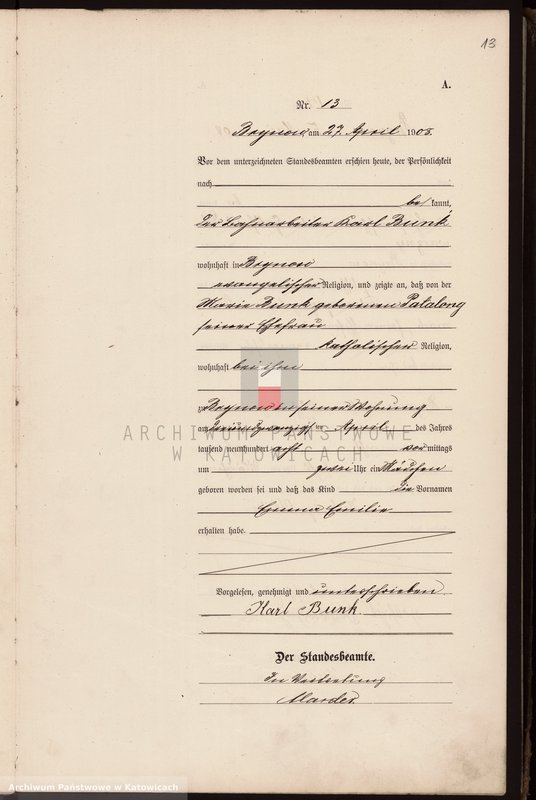 13
A.
Nr. 13
am 27. April 1908.
Vor dem unterzeichneten Standesbeamten erschien heute, der Persönlichkeit
nach
be kannt,
der Bahnarbeiter Karl Bunk
wohnhaft in
evangelischer Religion, und zeigte an, daß von der
Marie Bunk geborenen Patalong
seiner Ehefrau
katholischer Religion,
wohnhaft bei ihm
zu in seiner Wohnung
am ten April des Jahres
tausend neunhundert acht vor mittags
um zwei Uhr ein Mädchen
geboren worden sei und daß das Kind die Vornamen
Emma Emilie
erhalten habe.
Vorgelesen, genehmigt und unterschrieben
Karl Bunk
Der Standesbeamte.
In Vertretung
ARCHIWUM PAŃSTWOWE
W KATOWICACH
Archiwum Państwowe w Katowicach